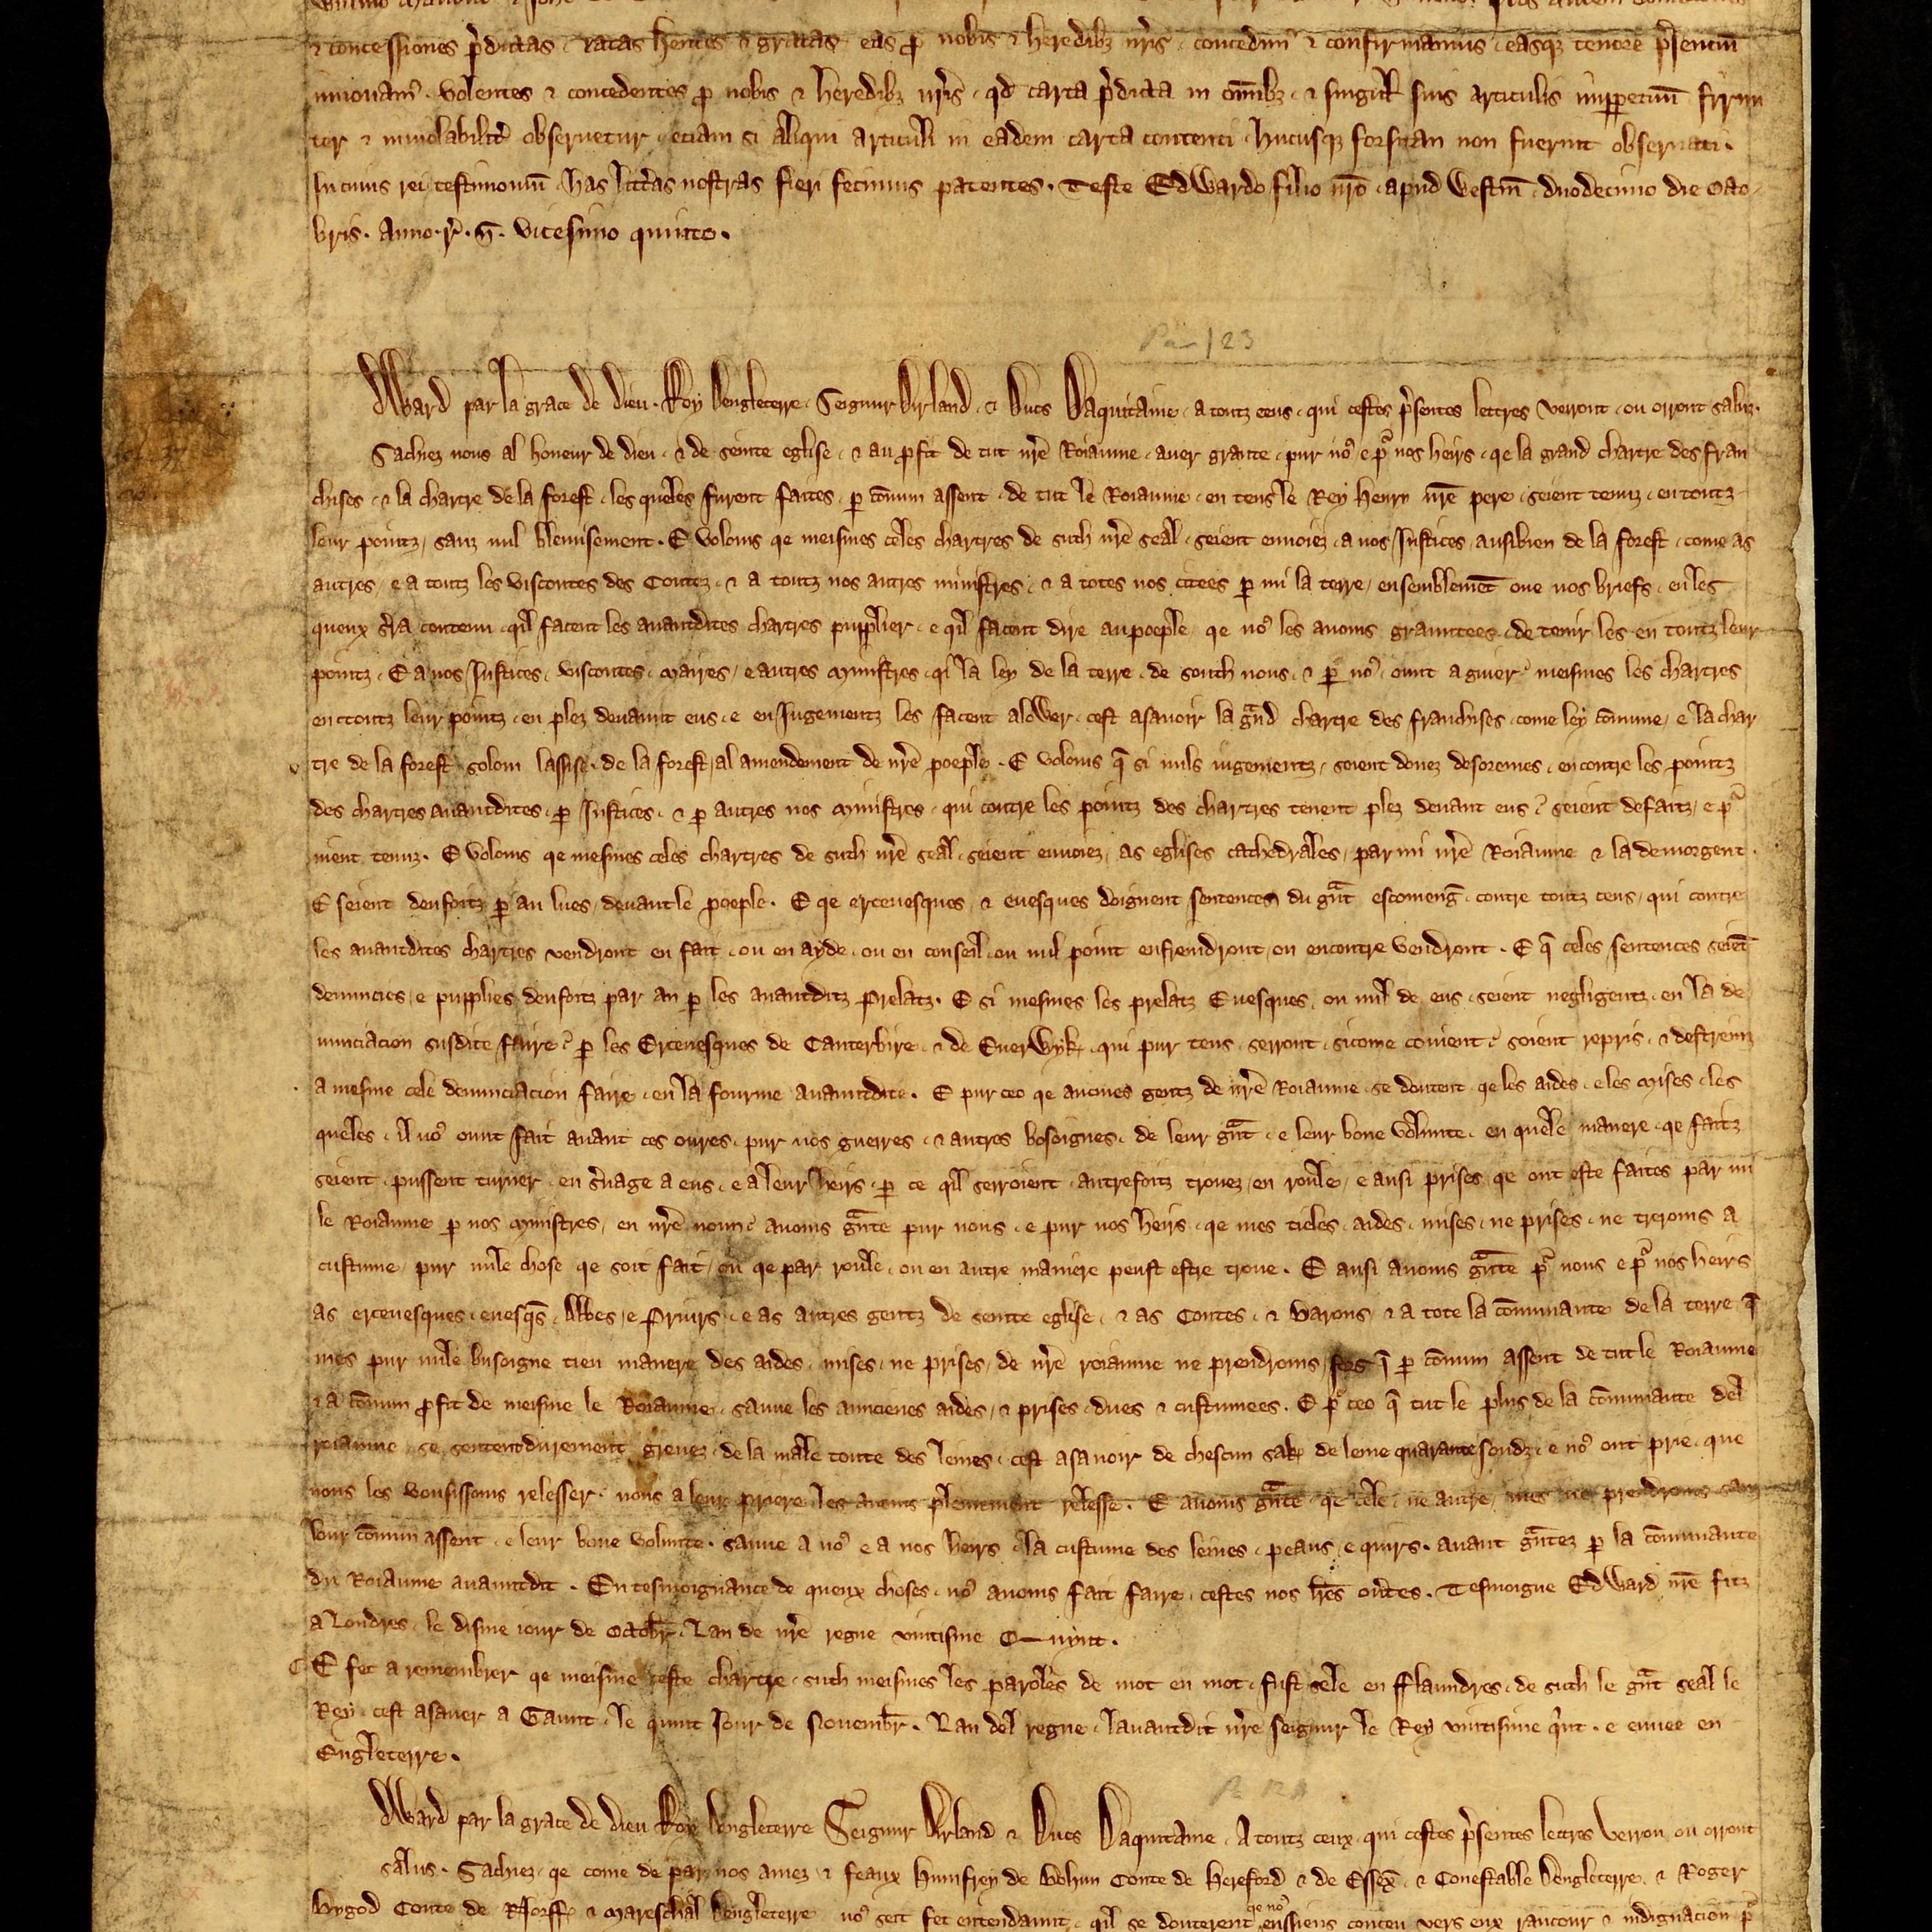 & concessiones p̄dictas . ratas hentes & gratas . eas ꝓ nobis & heredibꝫ nr̄is . concedim' & confirmamus . easqꝫ tenore p̄sentiū
innouam' . Volentes & concedentes ꝓ nobis & heredibꝫ nr̄is . qd carta p̄dicta in om̄ibꝫ . & singul' suis articulis imꝑpetuū firmi
ter & inuiolabilit' obseruetur . etiam si aliqui articuli in eadem carta contenti . hucusqꝫ forsitan non fuerint obseruati .
In cuius rei testimoniū . has litt'as nostras fieri fecimus patentes . Teste Edwardo filio nr̄o . apud Westm̄ . duodecimo die Octo
bris . Anno . r̄ . n̄ . vicesimo quinto .
123
dward par la grace de dieu . Roy Dengleterre . Seignur Dirland . & Ducs Daquitaine . a toutz ceus . qui cestes p̄sentes lettres verront . ou orront saluz .
Sachiez nous al honeur de dieu . & de seinte eglise . & au ꝓfit de tut nr̄e Roiaume . auer grante . pur no' e p' nos heirs . qe la grand chartre des fran
chises . & la chartre de la forest . les queles furent faites . ꝑ cōmun assent . de tut le Roiaume . en tens le Rey Henry nr̄e pere . seient tenuz . en toutz
leur pointz , sanz nul blemisement . E voloms qe meismes celes chartres de suth nr̄e seal . seient enuoiez . a nos Justices , ausibien de la forest , come as
autres , e a toutz les viscontes des Contez . & a toutz nos autres ministres . & a totes nos citees ꝑ mi la terre , ensemblemēt oue nos briefs . en les
queux s'ra contenu . qil facent les auantdites chartres pupplier . e qil facent dire au poeple . qe no' les auoms grauntees . de tenir les en toutz leur
pointz . E a nos Justices . viscontes . Maires , e autres Ministres . qi la ley de la terre . de south nous . & ꝑ no' . ount a guier . meismes les chartres
en toutz leur pointz . en plez deuaunt eus . e en Jugementz les facent alower . cest asauoir la g'nd chartre des franchises . come ley cōmune , e la char
tre de la forest solom lassise . de la forest , al amendement de nr̄e poeple . E voloms q̄ si nuls iugementz . soient donez desoremes . encontre les pointz
des chartres auantdites . ꝑ Justices . & ꝑ autres nos Ministres . qui contre les pointz des chartres tenent plez deuant eus . seient defaitz , e p'
nient tenuz . E voloms qe mesmes celes chartres de suth nr̄e seal . seient enuoiez , as eglises cathedrales , par mi nr̄e Roiaume & la demorgent .
E seient deufoitz ꝑ an lues , deuant le poeple . E qe ercevesques . & euesques doignent sentences du g'nt escomenḡ . contre toutz ceus , qui contre
les auantdites chartres vendront en fait . ou en ayde . ou en conseil . ou nul point enfreindront , ou encontre vendront . E q̄ celes sentences seiēt
denuncies , e pupplies deufoitz par an ꝑ les auantditz prelatz . E si mesmes les prelatz Euesques , ou nul de eus . seient negligentz . en la de
nunciacion susdite faire . ꝑ les Ercevesques de Canterbire . & de Euerwyk . qui pur tens . serront . sicome couient . soient repris . & destreinz
a mesme cele denunciacion faire . en la fourme auauntdite . E pur ceo qe aucunes gentz de nr̄e Roiaume . se doutent . qe les aides . e les Mises . les
queles . il no' ount fait auant ces oures . pur nos guerres . & autres bosoignes . de leur g'nt . e leur bone volunte . en quele manere . qe faitz
seient . pussent turner . en s'uage a eus . e a leur heirs . ꝑ ce qil serroient . autrefoitz trouez , en roule , e ausi prises , qe ont este faites par mi
le Roiaume ꝑ nos Ministres , en nr̄e noun . auoms g'nte pur nous . e pur nos heirs . qe mes tieles . aides . mises . ne prises . ne treroms a
custume , pur nule chose qe soit fait , ou qe par roule . ou en autre maniere peust estre troue . E ausi auoms g'nte p' nous e p' nos heirs
as ercevesques . euesqs . Abbes , e Priurs . e as autres gentz de seinte eglise . & as Contes . & Barons , & a tote la cōmunaute de la terre . q̄
mes pur nule busoigne tieu manere des aides . mises . ne prises , de nr̄e roiaume ne prendroms , fors q̄ ꝑ cōmun assent de tut le Roiaume
& a cōmun ꝓfit de meisme le Roiaume . sauue les auncienes aides , & prises . dues & custumees . E p' ceo q̄ tut le plus de la cōmunaute del
roiaume , se sentent durement greuez . de la male toute des leines . cest asauoir de chescun sak de leine quarante soudz . e no' ont prie . que
nous les vousissoms relesser . nous a leur priere les auoms pleinement relesse . E auoms g'nte qe cele . ne autre , mes ne prendroms sanz
lour cōmun assent . e leur bone volunte . sauue a no' e a nos heirs . la custume des leines . peaus , e quirs . auant g'ntez ꝑ la cōmunaute
du Roiaume auauntdit . En tesmoignance de queux choses . no' auoms fait faire . cestes nos lr̄es ou'tes . Tesmoigne Edward nr̄e fitz
a Londres . le disme iour de Octobr̄ . Lan de nr̄e regne vintisme Quynt .
E fet a remembrer qe meisme ceste chartre . suth meismes les paroles de mot en mot . fust sele en fflaundres . de suth le g'nt seal le
Rey . cest asauer a Gaunt . le quint Jour de Nouembr̄ . Lan del regne . lauantdit nr̄e seignur le Rey vintisme q'nt . e enuee en
Engleterre .
dward par la grace de dieu Roy Dengleterre Seignur Dirland & Ducs Daquitaine . A toutz ceux . qui cestes p̄sentes lettres verron . ou orront
salus . Sachiez . qe come de par nos amez & feaux Humfrey de Bohun Conte de Hereford & de Essex̄ . & Conestable Dengleterre . & Roger
Bygod Conte de Norff & Mareschal Dengleterre no' seit fet entendaunt . qil se douterent qe no' eussiens conceu vers eux rancour & indignacion p'